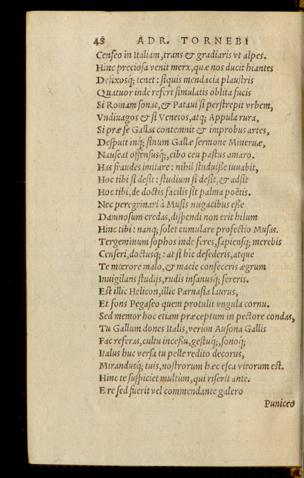 48 ADR. TORNEBI
Censeo in Italiam, trans & gradiaris vt alpes.
Hinc preciosa venit merx, quæ nos ducit hiantes
Defixosq; tenet: siquis mendacia plaustris
Quatuor inde refert simulatis oblita fucis
Si Romam sonat, & Pataui si perstrepit vrbem,
Vndiuagos & si Venetos, atq; Appula rura,
Si præ se Gallos contemnit & improbus artes,
Despuit inq; sinum Gallæ sermone Mineruæ,
Nauseat offensusq;, cibo ceu pastus amaro.
Has fraudes imitare: nihil studuisse iuuabit,
Hoc tibi si desit: studium si desit, & adsit
Hoc tibi, de doctis facilis sit palma poëtis.
Nec peregrinari à Musis nugacibus esse
Damnosum credas, dispendi non erit hilum
Hinc tibi: nanq; solet cumulare profectio Musas.
Tergeminum sophos inde feres, sapiensq; merebis
Censeri, doctusq;: at si hic desederis, atque
Te mœrore malo, & macie confeceris ægrum
Inuigilans studijs, rudis insanusq; fereris.
Est illic Helicon, illic Parnasia laurus,
Et fons Pegaseo quem protulit vngula cornu.
Sed memor hoc etiam præceptum in pectore condas,
Tu Gallum dones Italis, verùm Ausona Gallis
Fac referas, cultu incessu, gestuq;, sonoq;
Italus huc versa tu pelle redito decorus,
Mirandusq; tuis, nostrorum hæc esca virorum est.
Hinc te suspiciet multùm, qui riserit ante.
E re sed fuerit vel commendante galero
Puniceo